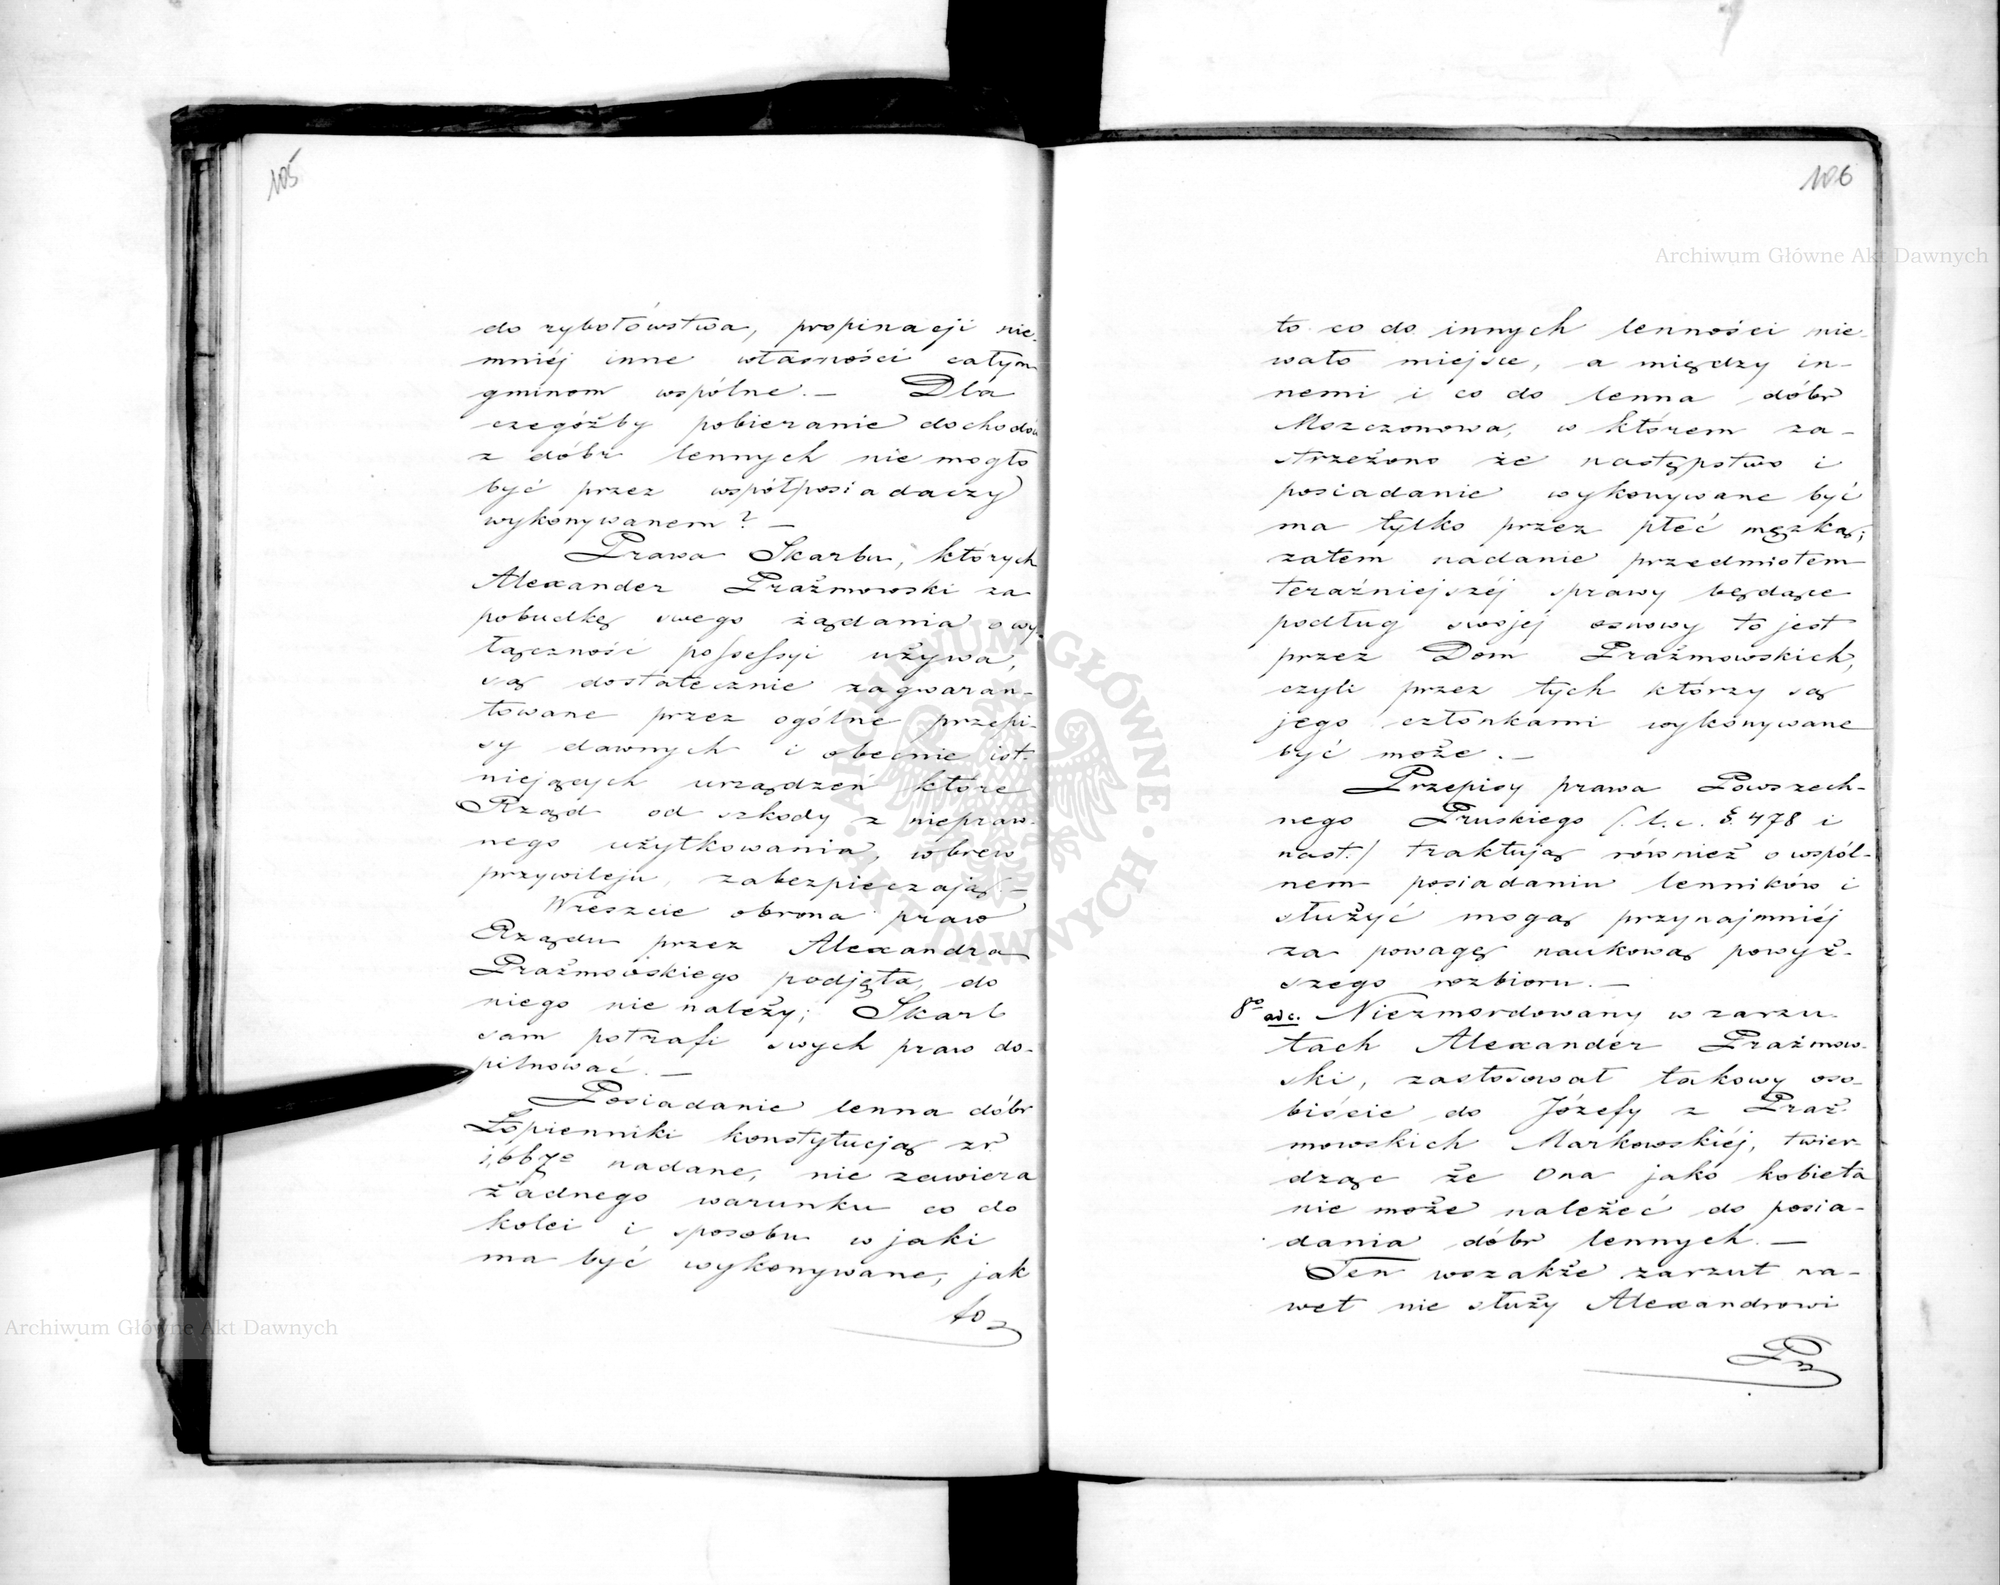 105
do rybołówstwa, propinacji nie-
mniéj inne własności całym
gminom wspólne. — Dla
czegóżby pobieranie dochodów
z dóbr lennych nie mogło
być przez współposiadaczy
wykonywanem? —
Prawa Skarbu, których
Alexander Prażmowski za
pobudkę swego żądania o wy
łączność possessyi używa,
są dostatecznie zagwaran-
towane przez ogólne przepi-
sy dawnych i obecnie ist-
niejących urządzeń które
Rząd od szkody z niepraw-
nego użytkowania, wbrew
przywileju, zabezpieczają. —
Wreszcie obrona praw
Rządu przez Alexandra
Prażmowskiego podjęta, do
niego nie należy; Skarb
sam potrafi swych praw do-
pilnować. —
Posiadanie lenna dóbr
Łopienniki konstytucją z r.
nadane, nie zawiera
żadnego warunku co do
kolei i sposobu w jaki
ma być wykonywane, jak
to
106
to co do innych lenności nie-
wało miejsce, a między in-
nemi i co do lenna dóbr
Mszczonowa, w którem za-
strzeżono że następstwo i
posiadanie wykonywane być
ma tylko przez płeć męzką;
zatem nadanie przedmiotem
teraźniejszéj sprawy będące
podług swojej osnowy to jest
przez Dom Prażmowskich,
czyli przez tych którzy są
jego członkami wykonywane
być może. —
Przepisy prawa Powszech-
nego Pruskiego /. l. c. §. 478 i
nast./ traktują również o wspól-
nem posiadaniu lenników i
służyć mogą przynajmniéj
za powagę naukową powyż-
szego rozbioru. —
8o ad c. Niezmordowany w zarzu-
tach Alexander Prażmow-
ski, zastosował takowy oso-
biście do Józefy z Praż-
mowskich Markowskiéj, twier-
dząc że Ona jako kobieta
nie może należeć do posia-
dania dóbr lennych. —
Ten wszakże zarzut na-
wet nie służy Alexandrowi
Pr
Archiwum Główne Akt Dawnych
Archiwum Główne Akt Dawnych
ARCHIWUM GŁÓWNE AKT DAWNYCH